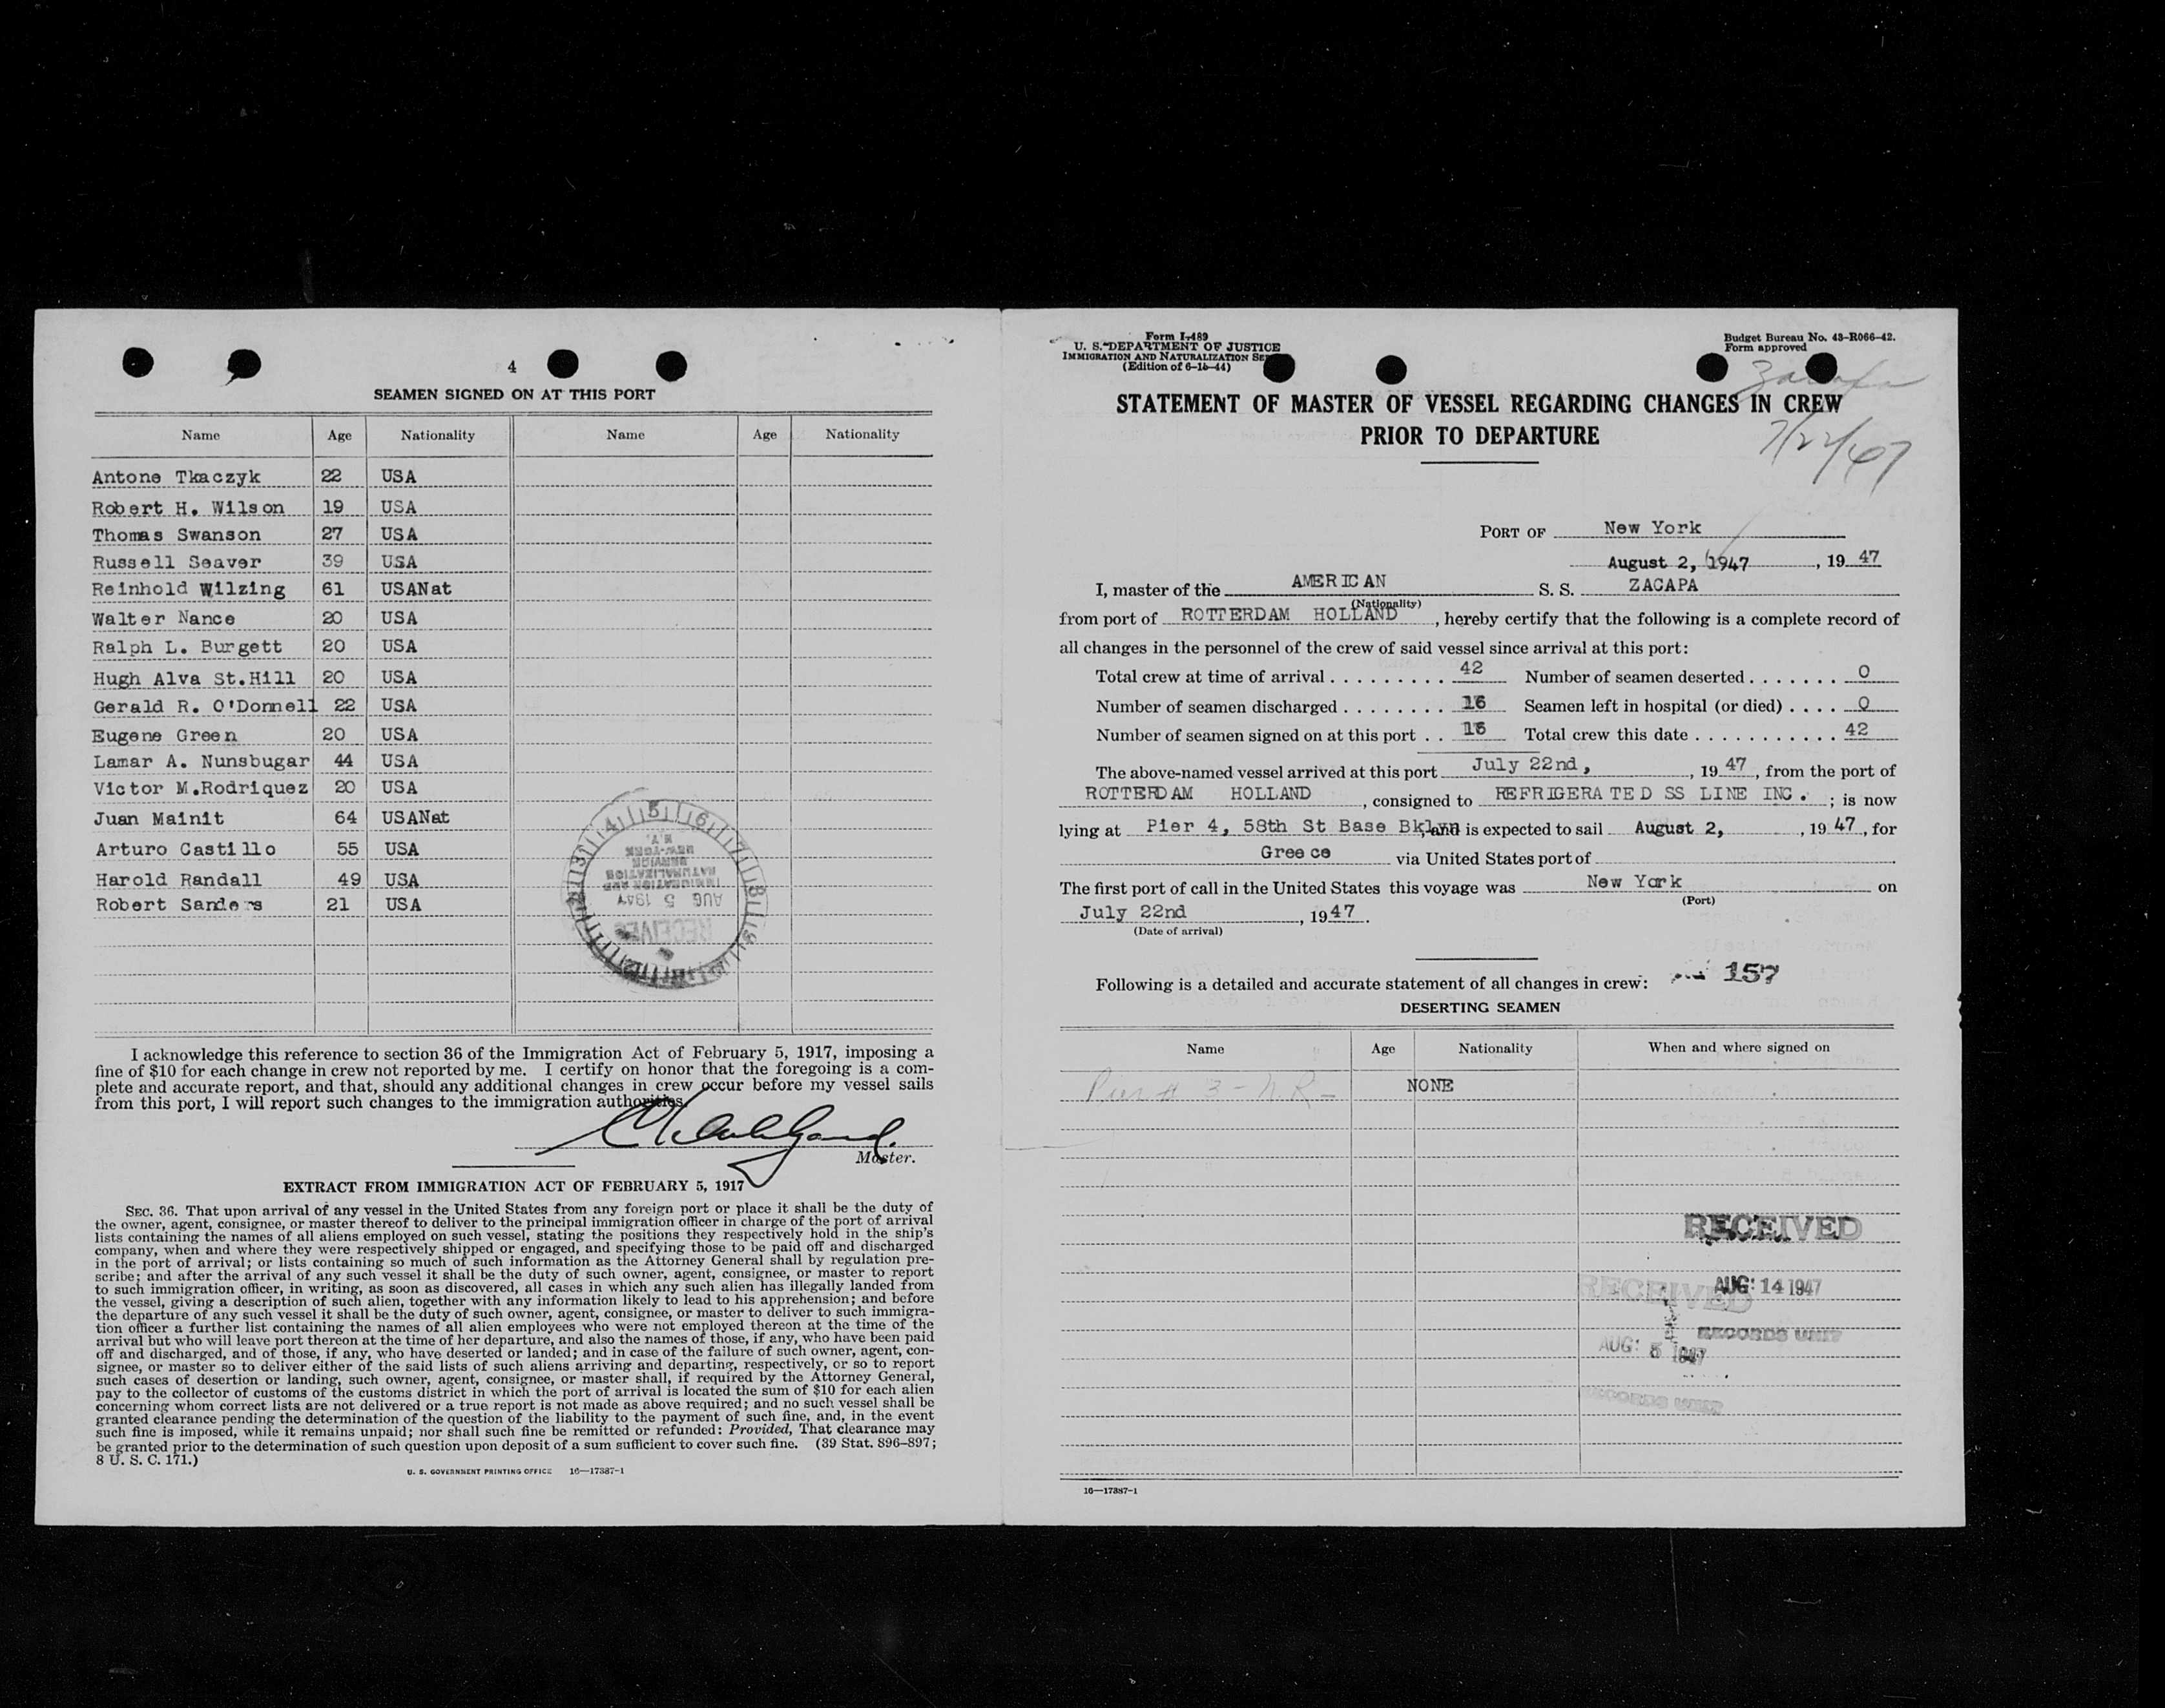 4
SEAMEN SIGNED ON AT THIS PORT
Name Age Nationality Name Age Nationality
Antone Tkaczyk 22 USA
Robert H. Wilson 19 USA
Thomas Swanson 27 USA
Russell Seaver 39 USA
Reinhold Wilzing 61 USANat
Walter Nance 20 USA
Ralph L. Burgett 20 USA
Hugh Alva St.Hill 20 USA
Gerald R. O'Donnell 22 USA
Eugene Green 20 USA
Lamar A. Nunsbugar 44 USA
Victor M.Rodriquez 20 USA
Juan Mainit 64 USANat
Arturo Castillo 55 USA
Harold Randall 49 USA
Robert Sanders 21 USA
RECEIVED
AUG 5 1947
IMMIGRATION AND
NATURALIZATION
SERVICE
NEW YORK
N.Y.
I acknowledge this reference to section 36 of the Immigration Act of February 5, 1917, imposing a
fine of $10 for each change in crew not reported by me. I certify on honor that the foregoing is a com-
plete and accurate report, and that, should any additional changes in crew occur before my vessel sails
from this port, I will report such changes to the immigration authorities.
Master.
EXTRACT FROM IMMIGRATION ACT OF FEBRUARY 5, 1917
SEC. 36. That upon arrival of any vessel in the United States from any foreign port or place it shall be the duty of
the owner, agent, consignee, or master thereof to deliver to the principal immigration officer in charge of the port of arrival
lists containing the names of all aliens employed on such vessel, stating the positions they respectively hold in the ship's
company, when and where they were respectively shipped or engaged, and specifying those to be paid off and discharged
in the port of arrival; or lists containing so much of such information as the Attorney General shall by regulation pre-
scribe; and after the arrival of any such vessel it shall be the duty of such owner, agent, consignee, or master to report
to such immigration officer, in writing, as soon as discovered, all cases in which any such alien has illegally landed from
the vessel, giving a description of such alien, together with any information likely to lead to his apprehension; and before
the departure of any such vessel it shall be the duty of such owner, agent, consignee, or master to deliver to such immigra-
tion officer a further list containing the names of all alien employees who were not employed thereon at the time of the
arrival but who will leave port thereon at the time of her departure, and also the names of those, if any, who have been paid
off and discharged, and of those, if any, who have deserted or landed; and in case of the failure of such owner, agent, con-
signee, or master so to deliver either of the said lists of such aliens arriving and departing, respectively, or so to report
such cases of desertion or landing, such owner, agent, consignee, or master shall, if required by the Attorney General,
pay to the collector of customs of the customs district in which the port of arrival is located the sum of $10 for each alien
concerning whom correct lists are not delivered or a true report is not made as above required; and no such vessel shall be
granted clearance pending the determination of the question of the liability to the payment of such fine, and, in the event
such fine is imposed, while it remains unpaid; nor shall such fine be remitted or refunded: Provided, That clearance may
be granted prior to the determination of such question upon deposit of a sum sufficient to cover such fine. (39 Stat. 896–897;
8 U. S. C. 171.)
U. S. GOVERNMENT PRINTING OFFICE 16—17387-1
Form I-489
U. S. DEPARTMENT OF JUSTICE
IMMIGRATION AND NATURALIZATION SE
(Edition of 6-15-44)
Budget Bureau No. 43-R066-42.
Form approved
Zacapa
7/22/47
STATEMENT OF MASTER OF VESSEL REGARDING CHANGES IN CREW
PRIOR TO DEPARTURE
PORT OF New York
August 2, 1947, 19 47
I, master of the AMERICAN S. S. ZACAPA
(Nationality)
from port of ROTTERDAM HOLLAND, hereby certify that the following is a complete record of
all changes in the personnel of the crew of said vessel since arrival at this port:
Total crew at time of arrival . . . . . . . . . 42 Number of seamen deserted . . . . . . . 0
Number of seamen discharged . . . . . . . . 16 Seamen left in hospital (or died) . . . . 0
Number of seamen signed on at this port . . 16 Total crew this date . . . . . . . . . . . 42
The above-named vessel arrived at this port July 22nd, , 19 47, from the port of
ROTTERDAM HOLLAND , consigned to REFRIGERATED SS LINE INC. ; is now
lying at Pier 4, 58th St Base Bklyn, and is expected to sail August 2, , 19 47, for
Greece via United States port of
The first port of call in the United States this voyage was New York on
(Port)
July 22nd , 19 47.
(Date of arrival)
Following is a detailed and accurate statement of all changes in crew: 157
DESERTING SEAMEN
Name Age Nationality When and where signed on
Pier # 3 - N.R- NONE
RECEIVED
AUG 14 1947
RECORDS UNIT
RECEIVED
AUG 5 1947
RECORDS UNIT
16—17387-1